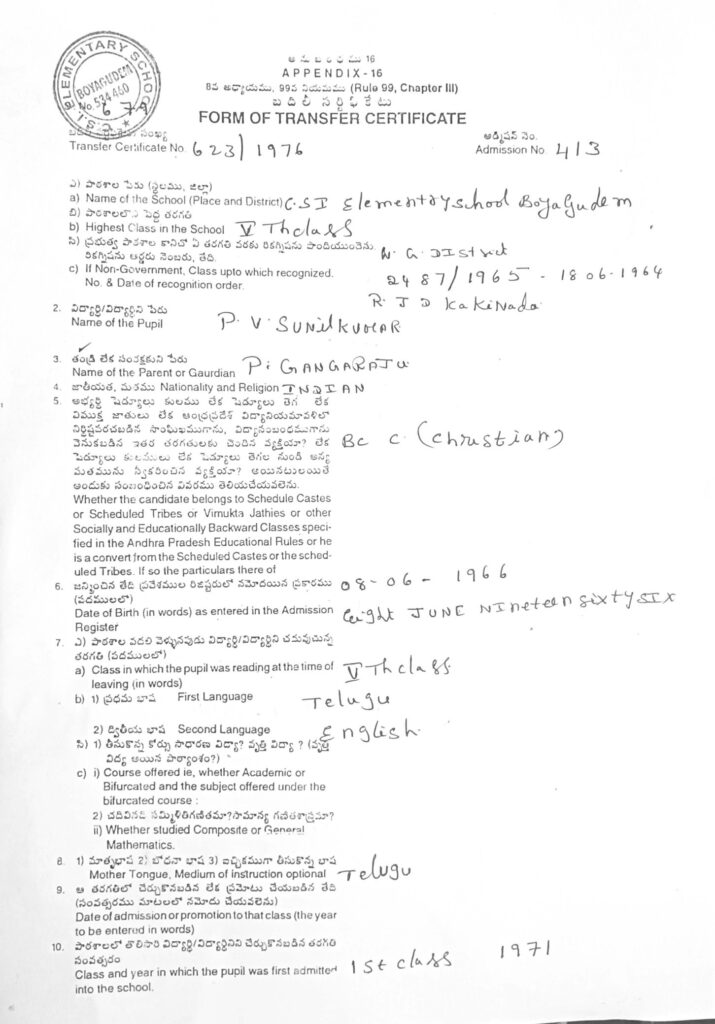 ELEMENTARY SCHOOL
BOYAGUDEM
No. 534460
C.S.I.
679
అనుబంధము 16
APPENDIX-16
8వ అధ్యాయము, 99వ నియమము (Rule 99, Chapter III)
బదిలీ సర్టిఫికేటు
FORM OF TRANSFER CERTIFICATE
సంఖ్య
అడ్మిషన్ నెం.
Transfer Certificate No 623/1976
Admission No 413
ఎ) పాఠశాల పేరు (స్థలము, జిల్లా)
a) Name of the School (Place and District) C.S.I Elementary school Boyagudem
బి) పాఠశాలలోని పెద్ద తరగతి
b) Highest Class in the School V Th class
సి) ప్రభుత్వ పాఠశాల కానిచో ఏ తరగతి వరకు రికగ్నిషను పొందియుండెను.
రికగ్నిషను ఆర్డరు నెంబరు, తేది.
W. G. District
c) If Non-Government, Class upto which recognized.
No. & Date of recognition order.
2487/1965 - 18 06-1964
R. J D Kakinada
2. విద్యార్థి/విద్యార్థిని పేరు
Name of the Pupil P. V. SUNILKUMAR
3. తండ్రి లేక సంరక్షకుని పేరు
Name of the Parent or Gaurdian P. GANGARAJU
4. జాతీయత, మతము Nationality and Religion INDIAN
5. అభ్యర్థి షెడ్యూలు కులము లేక షెడ్యూలు తెగ లేక
విముక్త జాతులు లేక ఆంధ్రప్రదేశ్ విద్యానియమావళిలో
నిర్దిష్టపరచబడిన సాంఘికముగాను, విద్యాసంబంధముగాను
వెనుకబడిన ఇతర తరగతులకు చెందిన వ్యక్తియా? లేక
షెడ్యూలు కులములు లేక షెడ్యూలు తెగల నుండి అన్య
మతమును స్వీకరించిన వ్యక్తియా? అయినటులయితే
అందుకు సంబంధించిన వివరము తెలియచేయవలెను.
BC C (Christian)
Whether the candidate belongs to Schedule Castes
or Scheduled Tribes or Vimukta Jathies or other
Socially and Educationally Backward Classes speci-
fied in the Andhra Pradesh Educational Rules or he
is a convert from the Scheduled Castes or the sched-
uled Tribes. If so the particulars there of
6. జన్మించిన తేది ప్రవేశముల రిజిష్టరులో నమోదయిన ప్రకారము 08-06-1966
(పదములలో)
Date of Birth (in words) as entered in the Admission
Register
Eight JUNE NINeteen sixty SIX
7. ఎ) పాఠశాల వదలి వెళ్ళునపుడు విద్యార్థి/విద్యార్థిని చదువుచున్న
తరగతి (పదములలో)
a) Class in which the pupil was reading at the time of
leaving (in words)
V Th class
b) 1) ప్రథమ భాష First Language Telugu
2) ద్వితీయ భాష Second Language English
సి) 1) తీసుకొన్న కోర్సు సాధారణ విద్యా? వృత్తి విద్యా ? (వృత్తి
విద్య అయిన పాఠ్యాంశం?)
c) i) Course offered ie, whether Academic or
Bifurcated and the subject offered under the
bifurcated course :
2) చదివినది సమ్మిళితగణితమా?సామాన్య గణితశాస్త్రమా?
ii) Whether studied Composite or General
Mathematics.
8. 1) మాతృభాష 2) బోధనా భాష 3) ఐచ్ఛికముగా తీసుకొన్న భాష
Mother Tongue, Medium of instruction optional Telugu
9. ఆ తరగతిలో చేర్చుకొనబడిన లేక ప్రమోటు చేయబడిన తేది
(సంవత్సరము మాటలలో నమోదు చేయవలెను)
Date of admission or promotion to that class (the year
to be entered in words)
10. పాఠశాలలో తొలిసారి విద్యార్థి/విద్యార్థినిని చేర్చుకొనబడిన తరగతి
సంవత్సరం
Class and year in which the pupil was first admitted
into the school.
1st class 1971